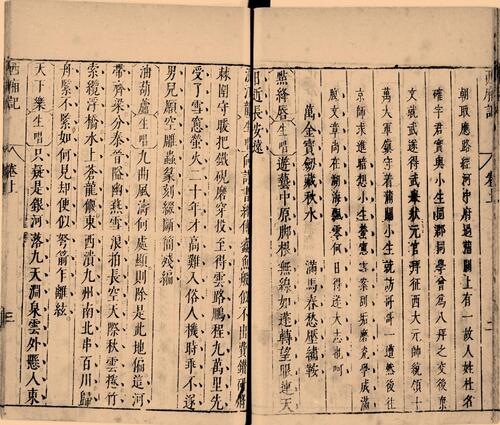 朝取應路經河中府過蒲關上有一故人姓杜名
確字君實與小生同郡同學曾爲八拜之交後棄
文就武遂得武舉狀元官拜征西大元帥統領十
萬大軍鎮守着蒲關小生就訪哥哥一遭然後往
京師求進暗想小生螢窗雪案刮垢磨光學成滿
腹文章尚在湖海飄零何日得遂大志也呵
萬金寶劒藏秋水 滿馬春愁壓繡鞍
點絳唇生唱遊藝中原脚根無線如蓬轉望眼連天
日近長安遠
棘圍守暖把鐵硯磨穿投至得雲路鵬程九萬里先
受了雪窗螢火二十年才高難入俗人機時乖不遂
男兒願空雕蟲篆刻綴斷簡殘編
油葫蘆生唱九曲風濤何處顯則除是此地偏這河
帶齊梁分秦晉隘幽燕雪浪拍長空天際秋雲捲竹
索纜浮橋水上蒼龍偃東西潰九州南北串百川歸
舟緊不緊如何見却便似弩箭乍離絃
天下樂生唱只疑是銀河落九天淵泉雲外懸入東
西廂記
卷上
三